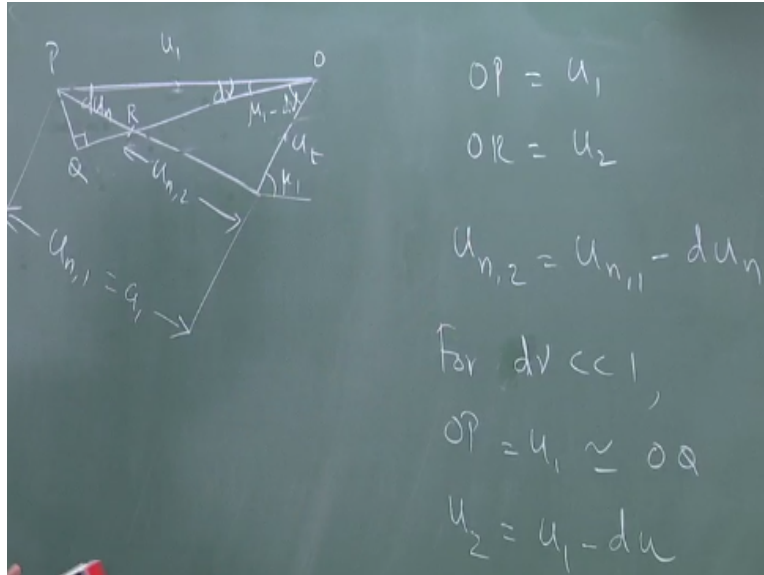 u₁
P
O
duₙ
dν
μ₁ - dν
R
Q
uₜ
uₙ,₂
μ₁
uₙ,₁ = a₁
OP = u₁
OR = u₂
uₙ,₂ = uₙ,₁ - duₙ
For dν << 1,
OP = u₁ ≃ OQ
u₂ = u₁ - du